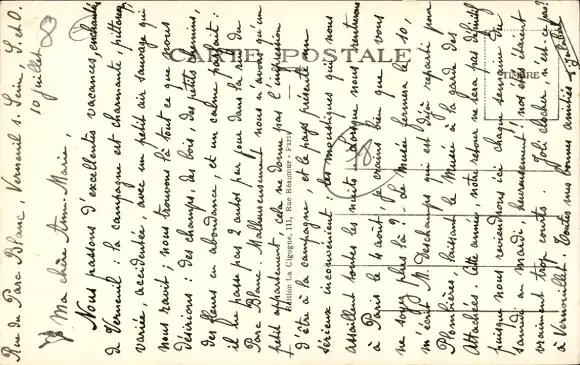 Rue du Parc Blanc, Verneuil s. Seine, S. et O.
10 juillet
Ma chère Anne-Marie,
Nous passons d'excellentes vacances, enchantés
de Verneuil : la campagne est charmante, pittoresque,
variée, accidentée, avec un petit air sauvage qui
nous ravit ; nous trouvons là tout ce que nous
désirions : des champs, des bois, des petits chemins,
des fleurs en abondance et un calme parfait :
il ne passe pas 2 autos par jour dans la rue du
Parc Blanc. Malheureusement nous n'avons qu'un
petit appartement, cela ne donne pas l'impression
d'être à la campagne, et le pays présente un
sérieux inconvénient : les moustiques qui nous
assaillent toutes les nuits. Lorsque nous rentrerons
à Paris le 4 août, je crains bien que vous
ne soyez plus là ? Le Musée fermera le 10,
m'écrit M. Deschamps qui est déjà reparti pour
Plombières, laissant le Musée à la garde des
Attachées. Cette année, notre retour ne sera pas définitif
puisque nous reviendrons ici chaque semaine du
samedi au mardi, heureusement ! nos étés étaient
vraiment trop courts. Joli clocher, n'est-ce pas ?
à Vernouillet. Toutes mes bonnes amitiés
CARTE POSTALE
TIMBRE
Edition La Cigogne, 111, Rue Réaumur - Paris